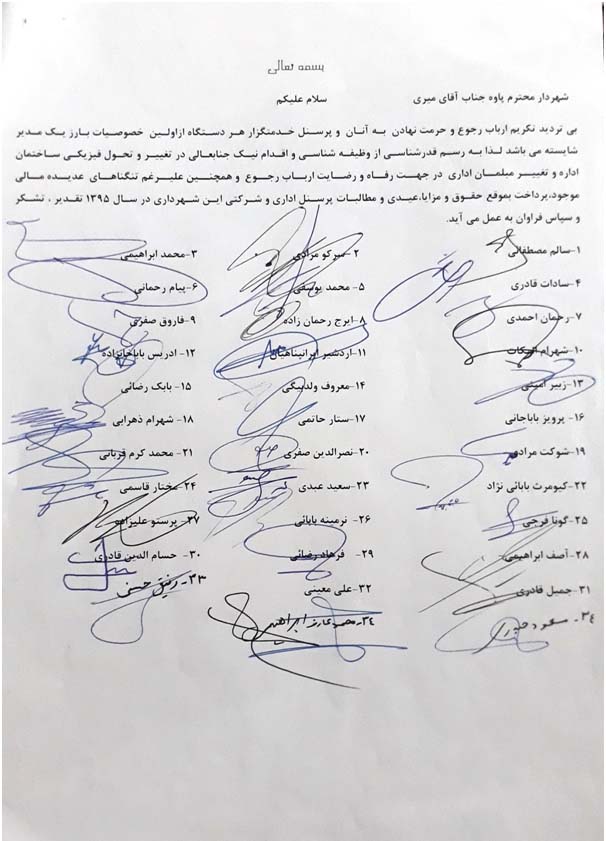 بسمه تعالی
شهردار محترم پاوه جناب آقای میری سلام علیکم
بی تردید تکریم ارباب رجوع و حرمت نهادن به آنان و پرسنل خدمتگزار هر دستگاه ازاولین خصوصیات بارز یک مدیر
شایسته می باشد لذا به رسم قدرشناسی از وظیفه شناسی و اقدام نیک جنابعالی در تغییر و تحول فیزیکی ساختمان
اداره و تغییر مبلمان اداری در جهت رفاه و رضایت ارباب رجوع و همچنین علیرغم تنگناهای عدیده مالی
موجود،پرداخت بموقع حقوق و مزایا،عیدی و مطالبات پرسنل اداری و شرکتی این شهرداری در سال ۱۳۹۵ تقدیر ، تشکر
و سپاس فراوان به عمل می آید.
۱-سالم مصطفائی ۲- میرکو مرادی ۳- محمد ابراهیمی
۴- سادات قادری ۵- محمد یوسفی ۶-پیام رحمانی
۷-رحمان احمدی ۸-ایرج رحمان زاده ۹-فاروق صفری
۱۰-شهرام ۱۱-اردشیر ایرانپناهیان ۱۲- ادریس باباخانزاده
۱۳-زبیر امینی ۱۴- معروف ولدبیگی ۱۵- بابک رضائی
۱۶- پرویز باباجانی ۱۷- ستار حاتمی ۱۸- شهرام ذهرابی
۱۹- شوکت مرادی ۲۰- نصرالدین صفری ۲۱- محمد کرم قربانی
۲۲-کیومرث بابائی نژاد ۲۳-سعید عبدی ۲۴-مختار قاسمی
۲۵-گونا فرجی ۲۶- نرمینه بابائی ۲۷- پرستو علیزاده
۲۸- آصف ابراهیمی ۲۹- فرهاد رضائی ۳۰- حسام الدین قادری
۳۱-جمیل قادری ۳۲-علی معینی ۳۳- رفیق حسنی
۳۴- مسعود ۳۴- ابراهیمی